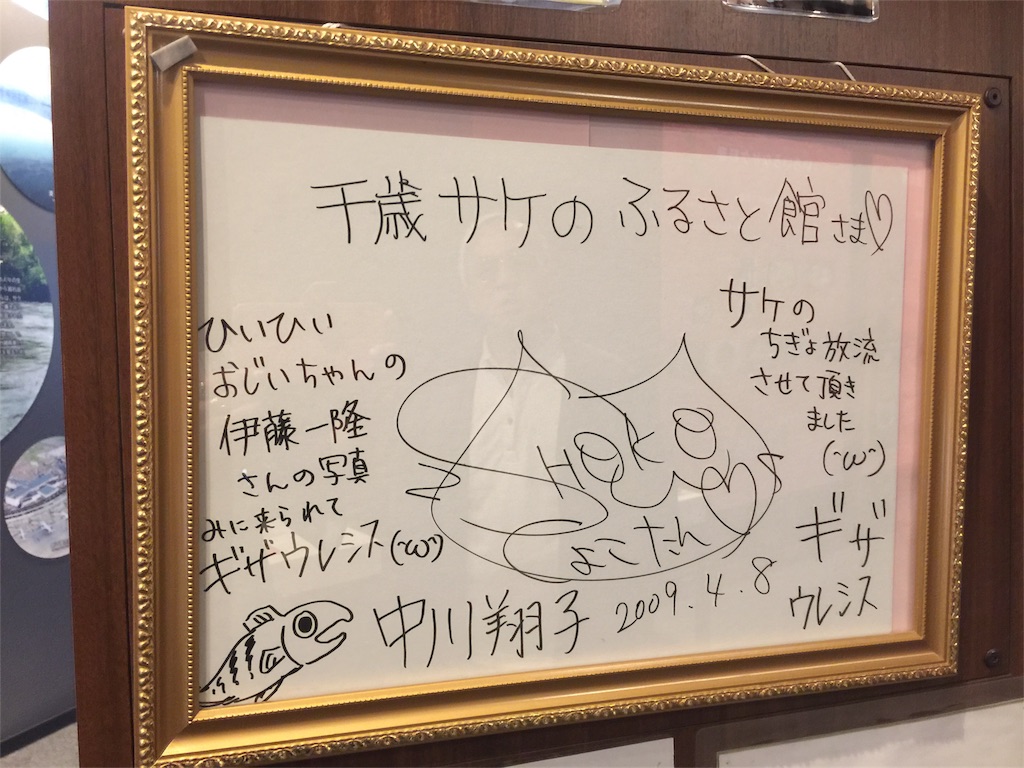 千歳サケのふるさと館さま♡
ひいひい
おじいちゃんの
伊藤一隆
さんの写真
みに来られて
ギザウレシス(´ω`)
サケの
ちぎょ放流
させて頂き
ました
(´ω`)
ギザ
ウレシス
SHOKO
しょこたん
中川翔子 2009.4.8